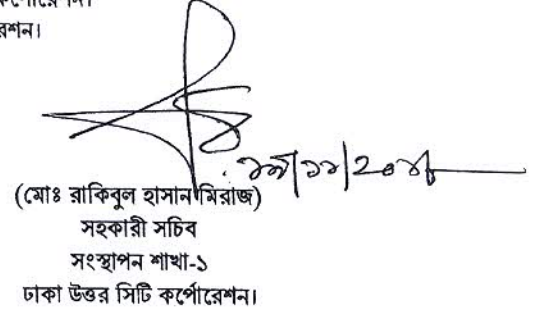 রেশন।
(মোঃ রাকিবুল হাসান মিরাজ)
সহকারী সচিব
সংস্থাপন শাখা-১
ঢাকা উত্তর সিটি কর্পোরেশন।